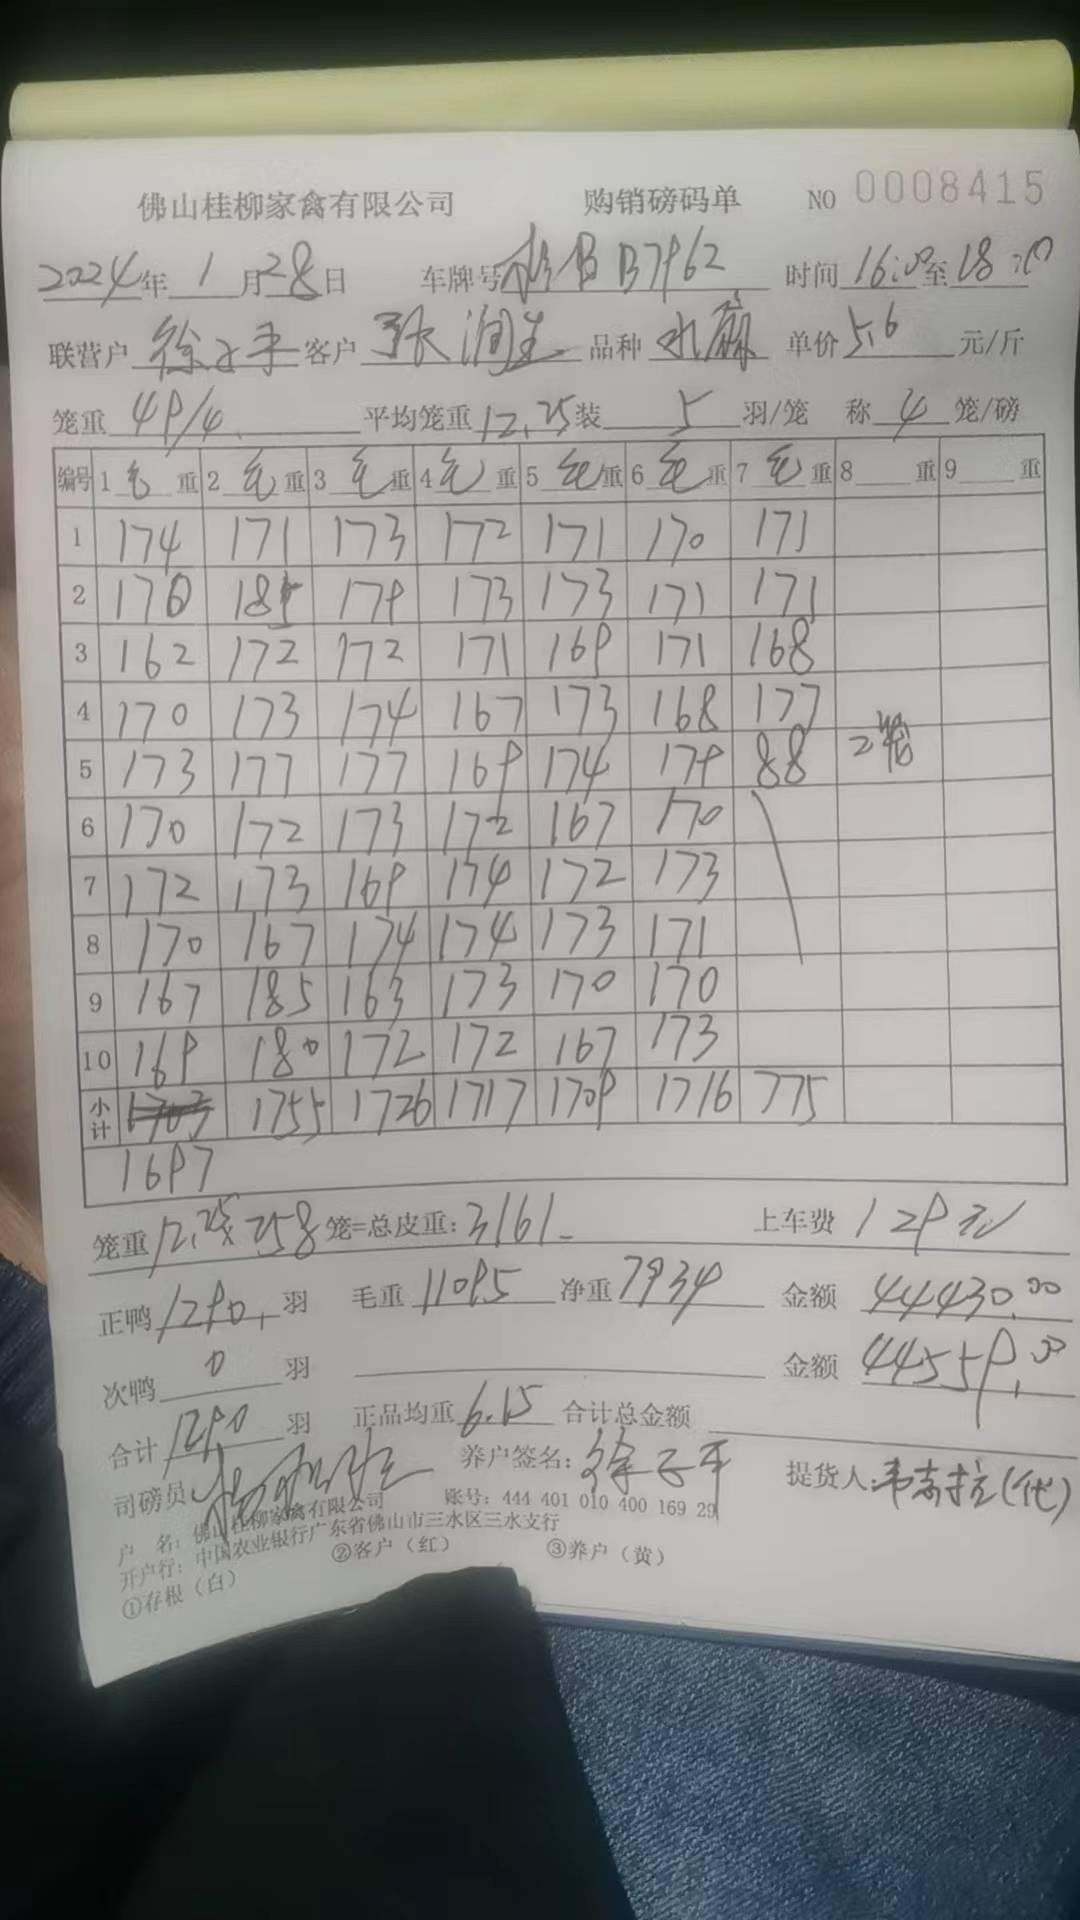 佛山桂柳家禽有限公司 购销磅码单 NO 0008415
2024年 1 月 28 日 车牌号 B7962 时间 16:00 至 18:00
联营户 徐子平 客户 张润生 品种 水麻 单价 5.6 元/斤
笼重 49/4 平均笼重 12.25 装 5 羽/笼 称 4 笼/磅
编号 1 毛 重 2 毛 重 3 毛 重 4 毛 重 5 毛 重 6 毛 重 7 毛 重 8 重 9 重
1 174 171 173 172 171 170 171
2 170 185 179 173 173 171 171
3 162 172 172 171 169 171 168
4 170 173 174 167 173 168 177
5 173 177 177 169 174 179 88 2笼
6 170 172 173 172 167 170
7 172 173 169 174 172 173
8 170 167 174 174 173 171
9 167 185 163 173 170 170
10 169 180 172 172 167 173
小计 1703 1755 1726 1717 1709 1716 775
1697
笼重 12.25 x 258 笼=总皮重: 3161 上车费 129元
正鸭 1290 羽 毛重 11095 净重 7934 金额 44430.00
次鸭 0 羽 金额 44559.00
合计 1290 羽 正品均重 6.15 合计总金额
司磅员 养户签名: 徐子平 提货人: (代)
户 名: 佛山桂柳家禽有限公司 账号: 444 401 010 400 169 29
开户行: 中国农业银行广东省佛山市三水区三水支行
①存根(白) ②客户(红) ③养户(黄)